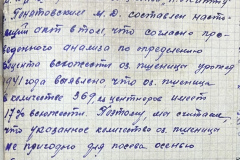 М. Д. составлен насто-
ящий акт в том, что согласно про-
веденного анализа по определению
всхожести оз. пшеницы урожая
1941 года выявлено что оз. пшеница
в количестве 369 центнеров имеет
17% всхожести. Поэтому, мы считаем,
что указанное количество оз. пшеницы
не пригодно для посева осенью